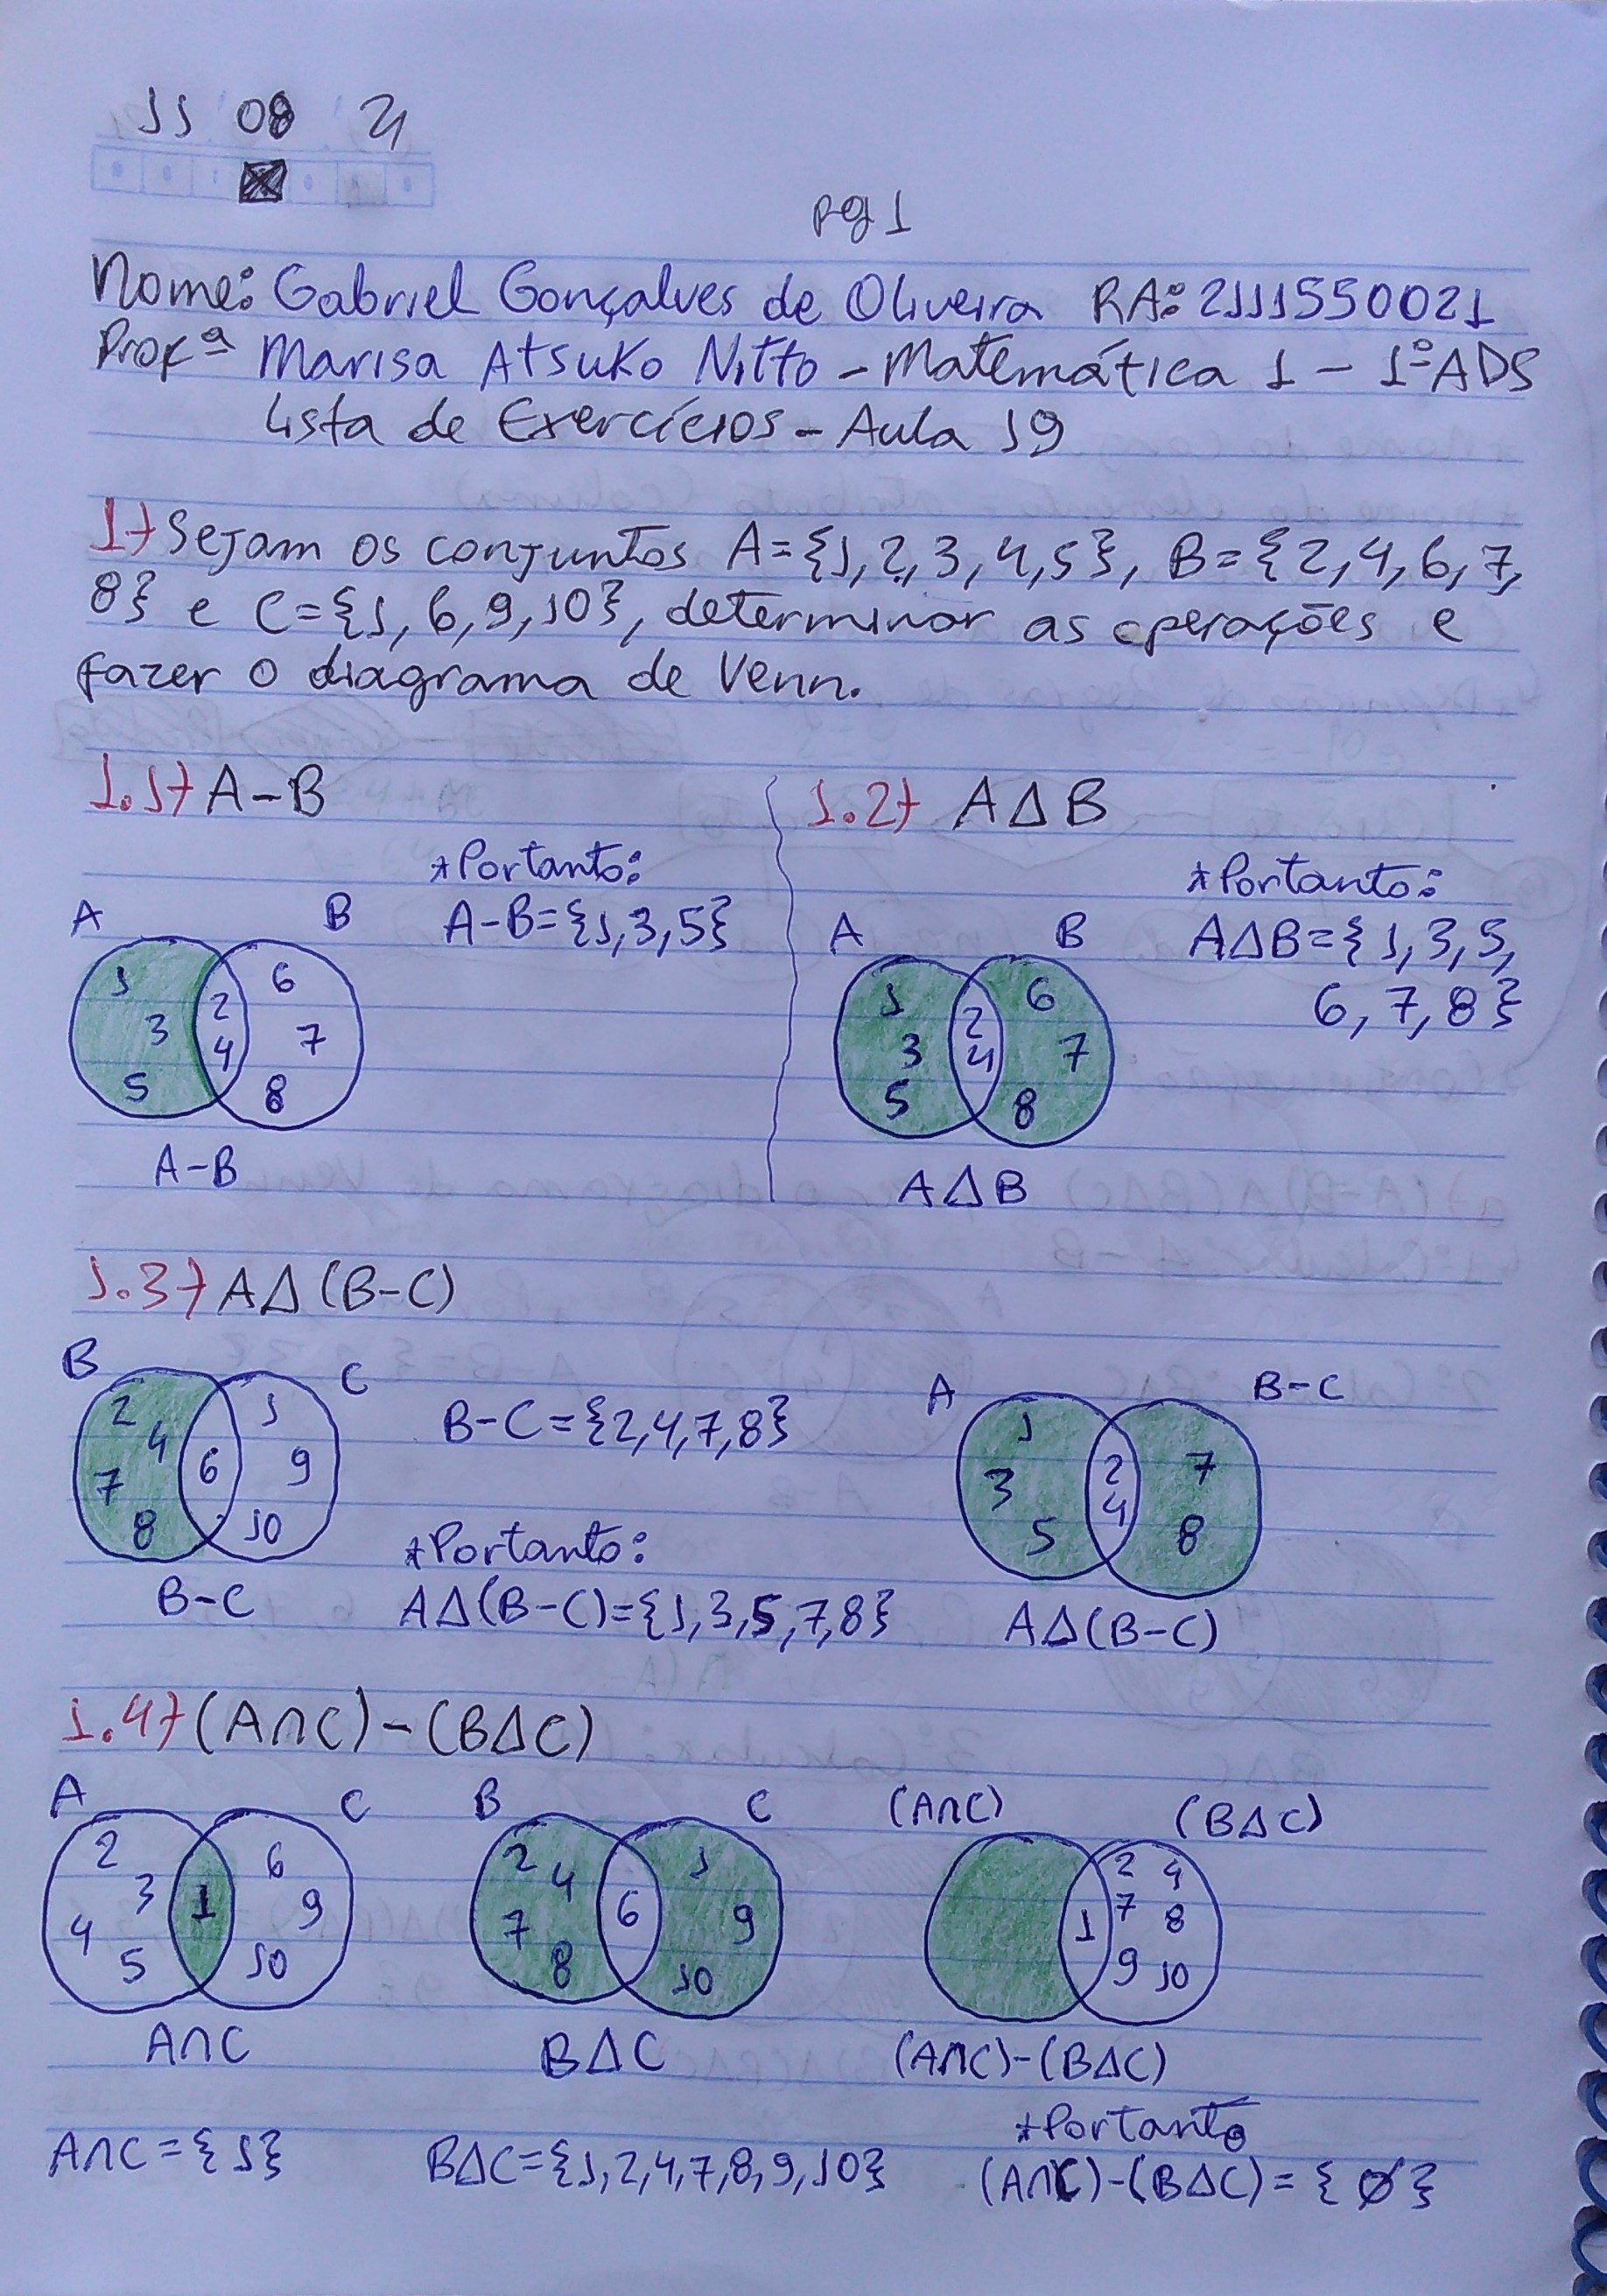 11 08 21
pg 1
Nome: Gabriel Gonçalves de Oliveira RA: 2111550021
Profª Marisa Atsuko Nitto - Matemática 1 - 1º ADS
Lista de Exercícios - Aula 19
1) Sejam os conjuntos A={1,2,3,4,5}, B={2,4,6,7,
8} e C={1,6,9,10}, determinar as operações e
fazer o diagrama de Venn.
1.1) A-B
*Portanto:
A-B={1,3,5}
A B
1 3 5 2 4 6 7 8
A-B
1.2) AΔB
*Portanto:
AΔB={1,3,5,
6,7,8}
A B
1 3 5 2 4 6 7 8
AΔB
1.3) AΔ(B-C)
B C
2 4 7 8 6 1 9 10
B-C
B-C={2,4,7,8}
*Portanto:
AΔ(B-C)={1,3,5,7,8}
A B-C
1 3 5 2 4 7 8
AΔ(B-C)
1.4) (A∩C)-(BΔC)
A C
2 3 4 5 1 6 9 10
A∩C
A∩C={1}
B C
2 4 7 8 6 1 9 10
BΔC
BΔC={1,2,4,7,8,9,10}
(A∩C) (BΔC)
1 2 4 7 8 9 10
(A∩C)-(BΔC)
*Portanto
(A∩C)-(BΔC)={Ø}